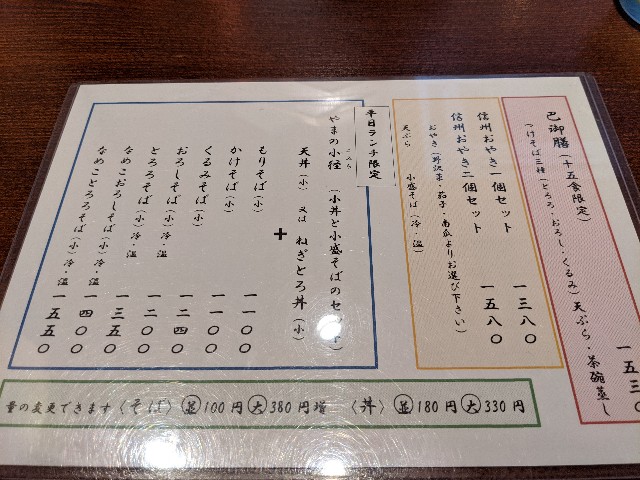 巴御膳(十五食限定)
つけそば三種(とろろ・おろし・くるみ)天ぷら・茶碗蒸し
一五三〇
信州おやき一個セット 一三八〇
信州おやき二個セット 一五八〇
おやき(野沢菜・茄子・南瓜よりお選び下さい)
天ぷら 小盛そば(冷・温)
平日ランチ限定
やまの小径 (小丼と小盛そばのセット)
こみち
天丼(小) 又は ねぎとろ丼(小)
+
もりそば(小) 一一〇〇
かけそば(小) 一一〇〇
くるみそば(小) 一二四〇
おろしそば(小)冷・温 一二〇〇
とろろそば(小)冷・温 一三五〇
なめこおろしそば(小)冷・温 一四〇〇
なめことろろそば(小)冷・温 一五五〇
量の変更できます〈そば〉並100円大380円増 〈丼〉並180円大330円